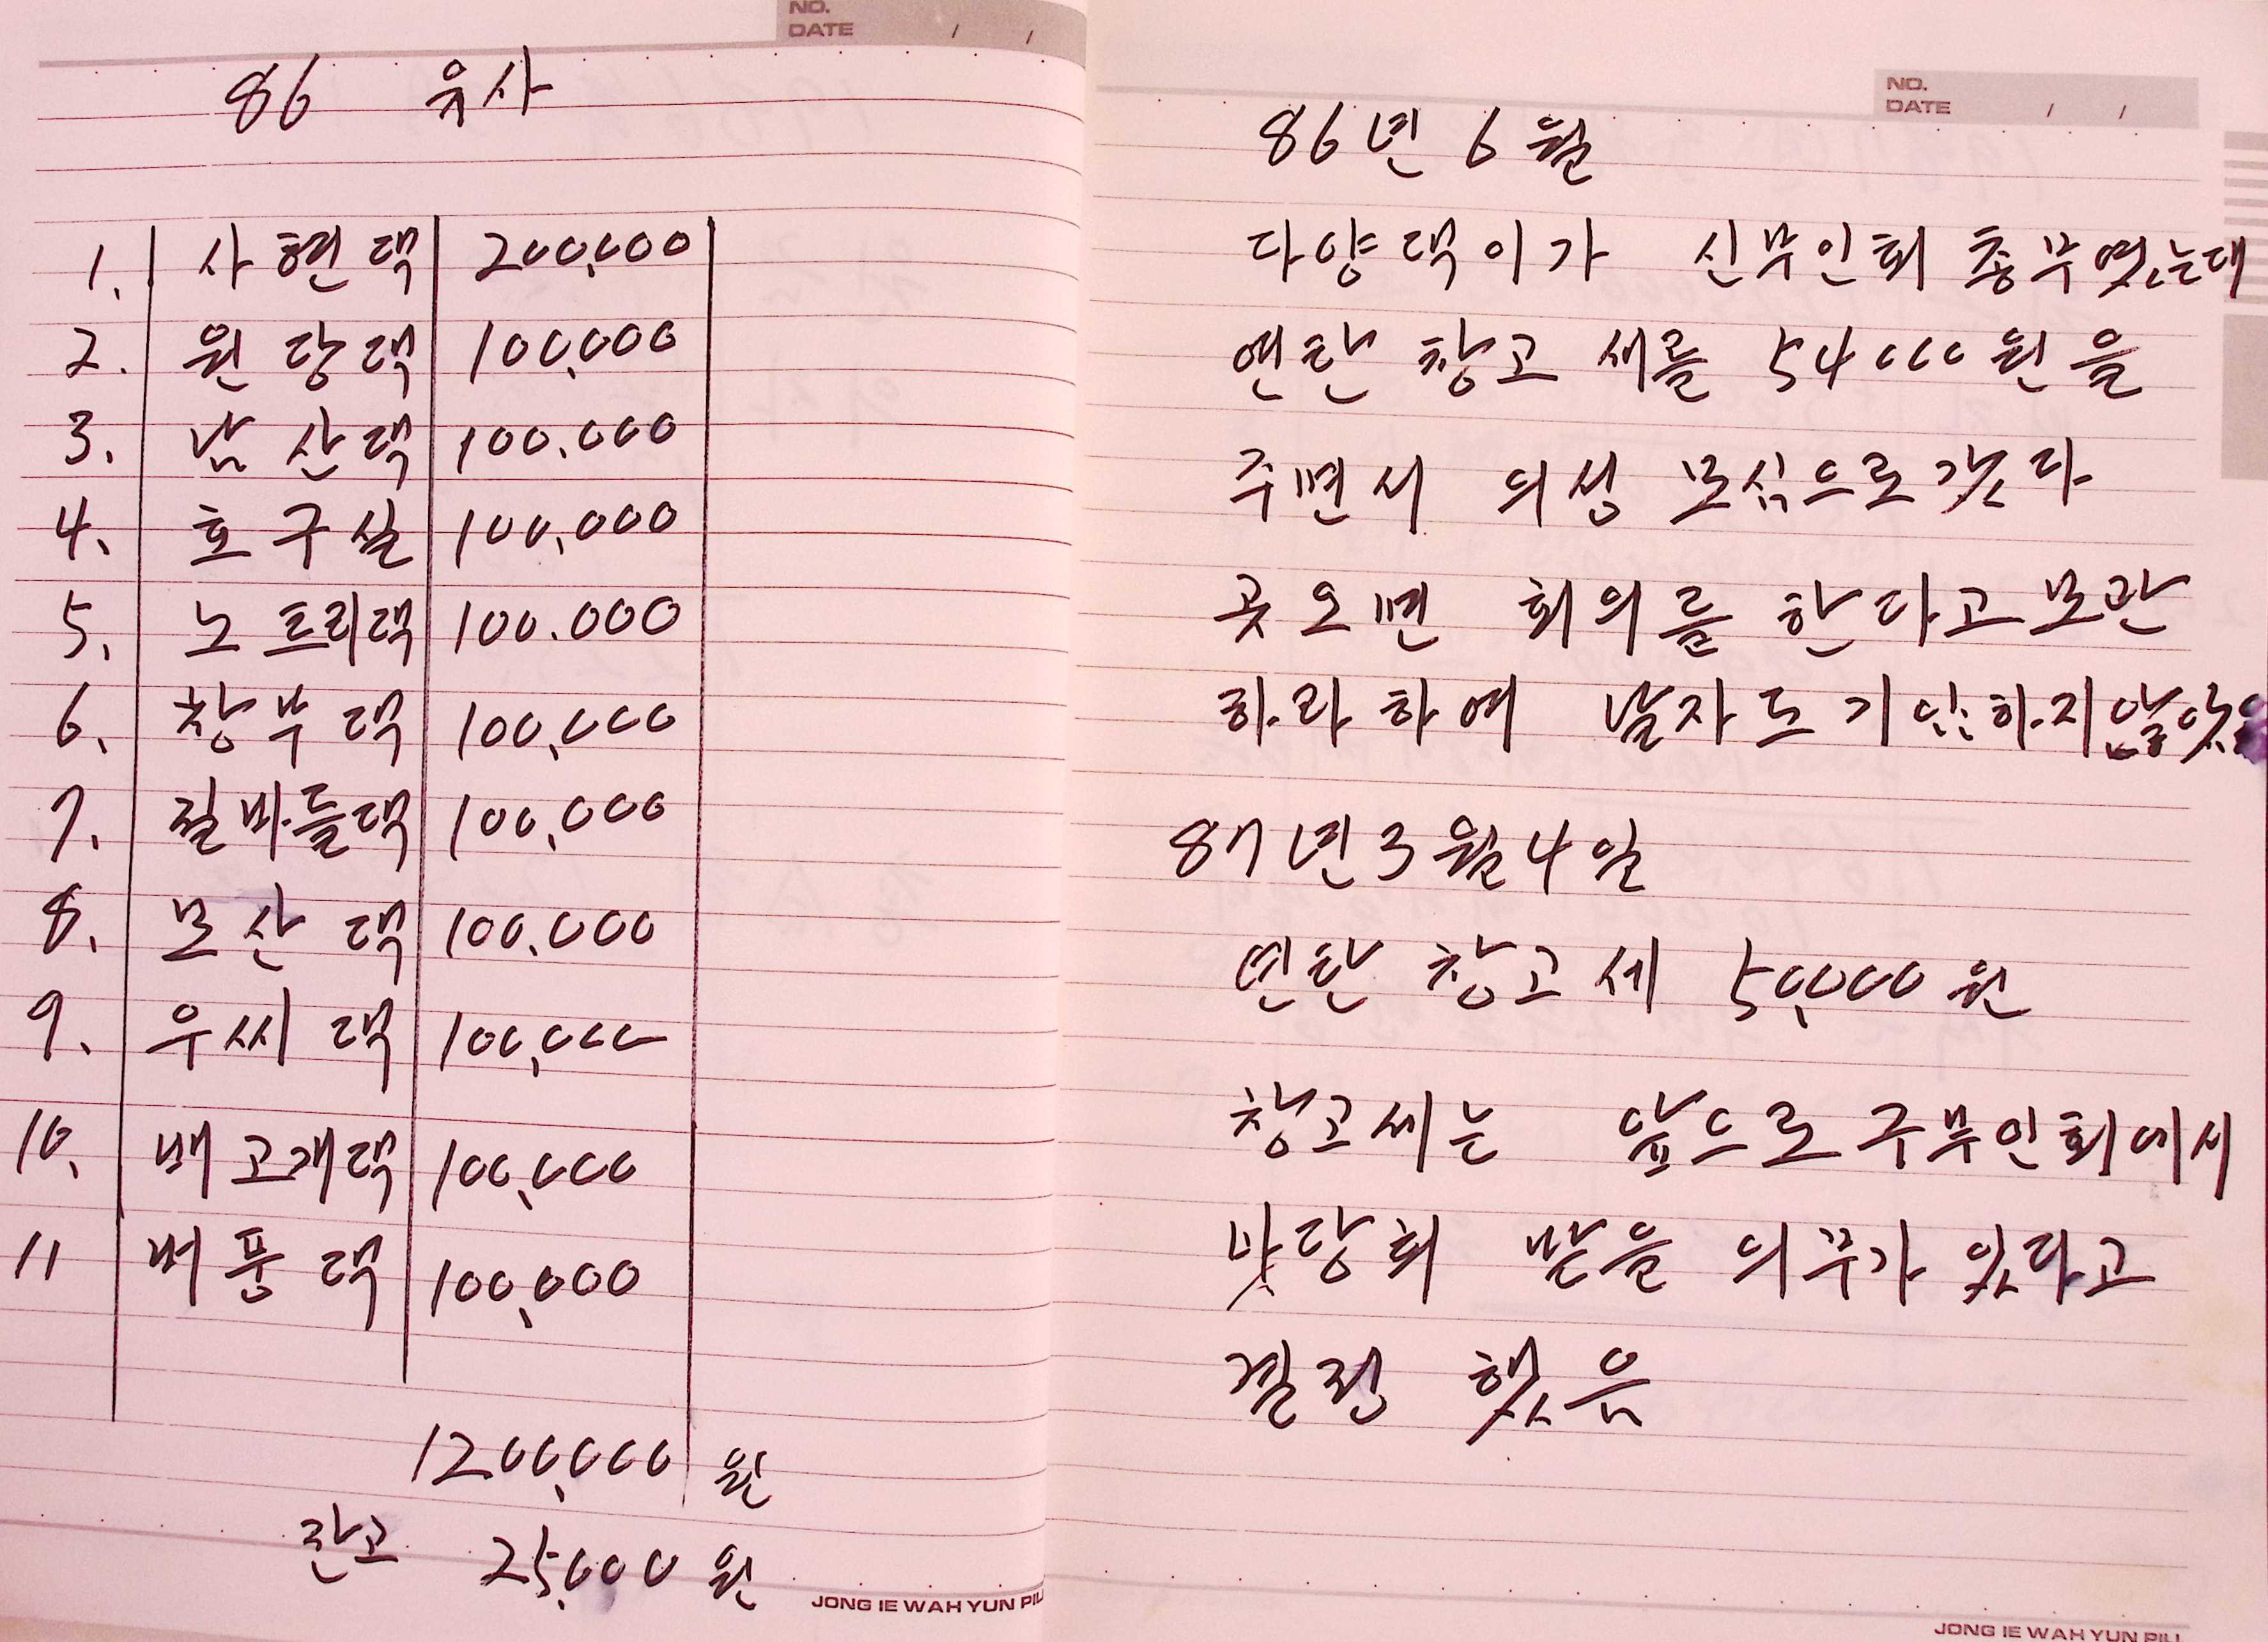 NO.
DATE / /
86 유사
1. 사현댁 200,000
2. 원당댁 100,000
3. 남산댁 100,000
4. 호구실 100,000
5. 노트리댁 100.000
6. 창부댁 100,000
7. 질바들댁 100,000
8. 모산댁 100,000
9. 우씨댁 100,000
10. 배고개댁 100,000
11 벼풍댁 100,000
1200,000 원
잔고 25,000 원
JONG IE WAH YUN PIL
NO.
DATE / /
86년 6월
다양댁이가 신부인회 총무였는대
연탄 창고 세를 54000원을
주면서 의성 모심으로갔다
곳오면 회의를 한다고보관
하라하여 날자도 기입하지않앗
87년3월4일
연탄 창고세 50,000원
창고세는 앞으로구부인회에서
맛당히 받을 의무가 있다고
결정 했음
JONG IE WAH YUN PILL